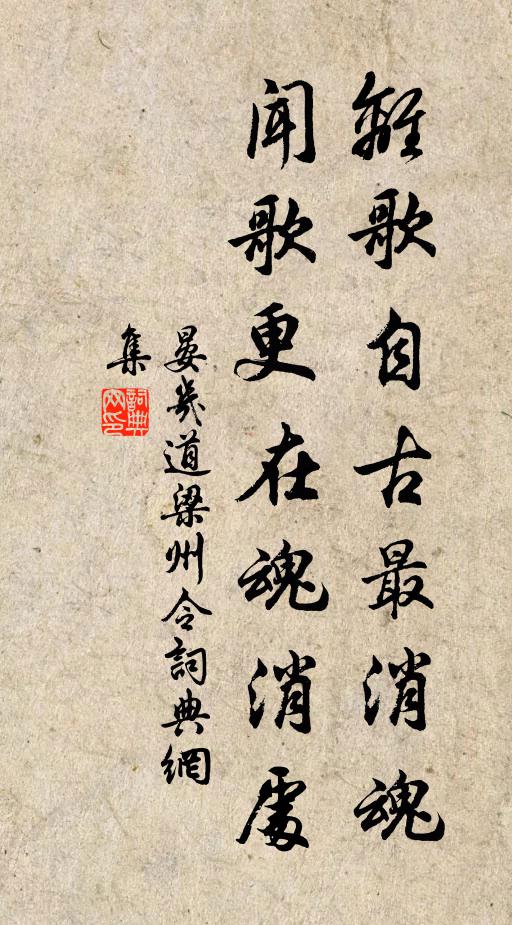 離歌自古最消魂
聞歌更在魂消處
晏幾道梁州令詞典網
集
詞典網印